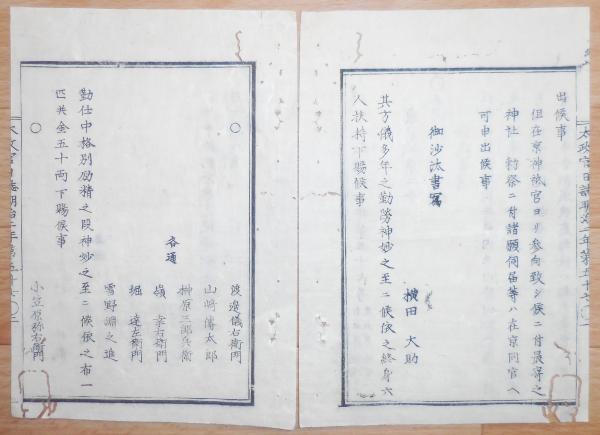 出候事
但在京神祇官ヨリ参向致シ候ニ付最寄之
神社 勅祭ニ付諸願伺届等ハ在京同官ヘ
可申出候事
御沙汰書写
横田 大助
其方儀多年之勤労神妙之至ニ候依之終身六
人扶持下賜候事
太政官日誌明治二年第五十七
○
渡邊儀右衛門
山﨑傳太郎
榊原三郎兵衛
嶺 幸右衛門
堀 達左衛門
雪野瀬之進
各通
勤仕中格別励精之段神妙之至ニ候依之布一
匹共金五十両下賜候事
○
小笠原弥右衛門